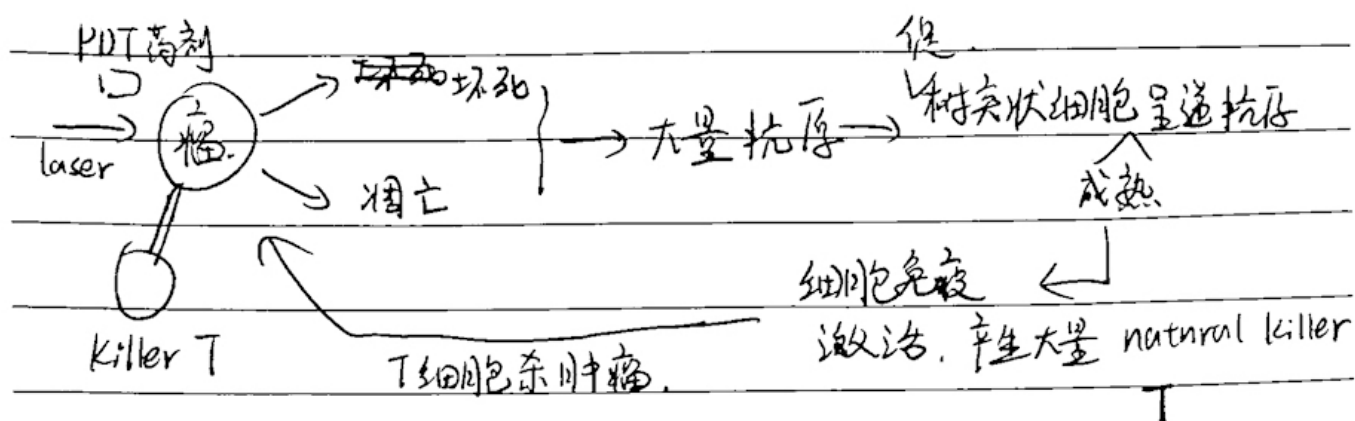 PDT药剂
laser
瘤.
坏死
凋亡
大量抗原
促
树突状细胞呈递抗原
成熟
细胞免疫
激活.产生大量 natural killer
T
T细胞杀肿瘤.
Killer T